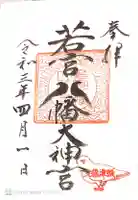 奉拝
若宮八幡大神宮
令和三年四月一日